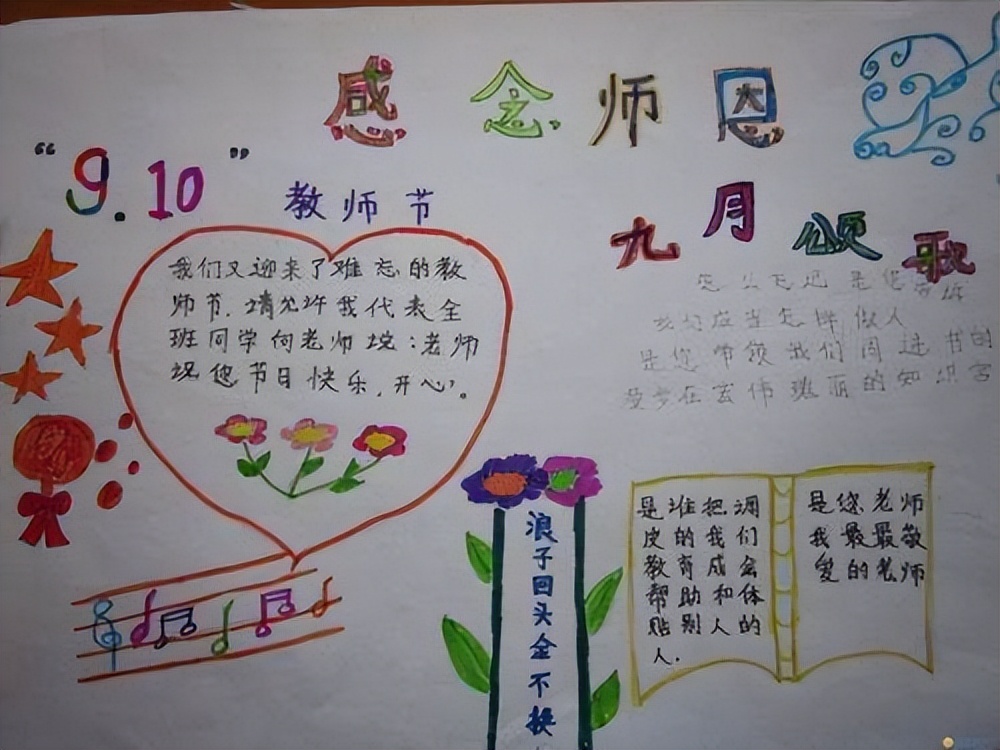 感念师恩
“9.10”
教师节
九月颂歌
我们又迎来了难忘的教
师节.请允许我代表全
班同学向老师说:老师
祝您节日快乐,开心。
是您告诉
我们应当怎样做人
是您带领我们闯进书的
漫步在宏伟瑰丽的知识宫
浪子回头金不换
是谁把调
皮的我们
教育成会
帮助和体
贴别人的
人.
是您老师
我最最敬
爱的老师